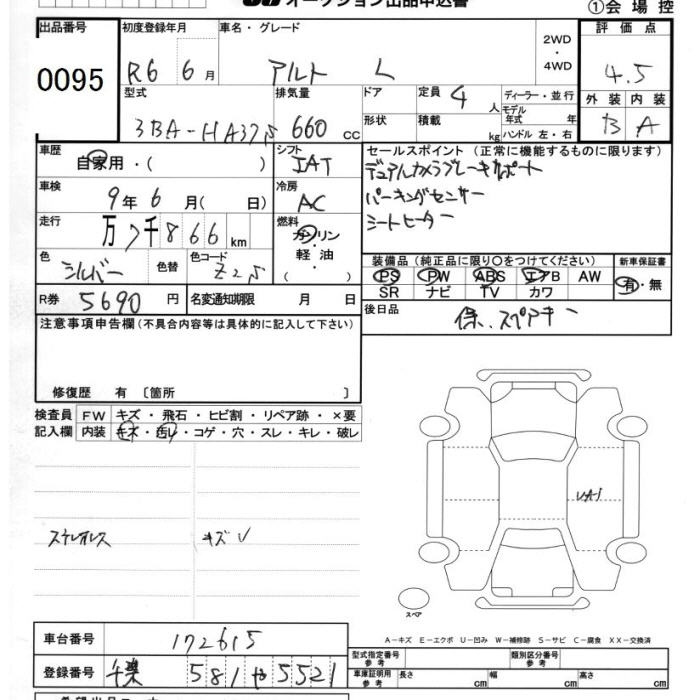 オークション出品申込書
①会場控
出品番号 初度登録年月 車名・グレード 2WD・4WD 評価点
0095 R6 6月 アルト L 4.5
型式 排気量 ドア 定員 4人 ディーラー・並行 外装 内装
3BA-HA37S 660cc 形状 積載 kg モデル年式 年 ハンドル 左・右 B A
車歴 自家用・( ) シフト IAT セールスポイント (正常に機能するものに限ります)
デュアルカメラブレーキサポート
車検 9年 6月( 日) 冷房 AC パーキングセンサー
シートヒーター
走行 万7千866km 燃料 ガソリン・軽油・( )
色 シルバー 色替 色コード Z2S 装備品 (純正品に限り〇をつけてください) 新車保証書
PS PW ABS エアB AW 有・無
SR ナビ TV カワ
R券 5690円 名変通知期限 月 日 後日品 保、スペアキー
注意事項申告欄 (不具合内容等は具体的に記入して下さい)
修復歴 有 〔箇所 〕
検査員記入欄 FW キズ・飛石・ヒビ割・リペア跡・×要
内装 キズ・汚レ・コゲ・穴・スレ・キレ・破レ
UA1
ステレオレス キズ U
スペア
A-キズ E-エクボ U-凹み W-補修跡 S-サビ C-腐食 XX-交換済
車台番号 172615 型式指定番号 参考 類別区分番号 参考
登録番号 千葉 581 や 5521 車庫証明用 参考 長さ cm 幅 cm 高さ cm